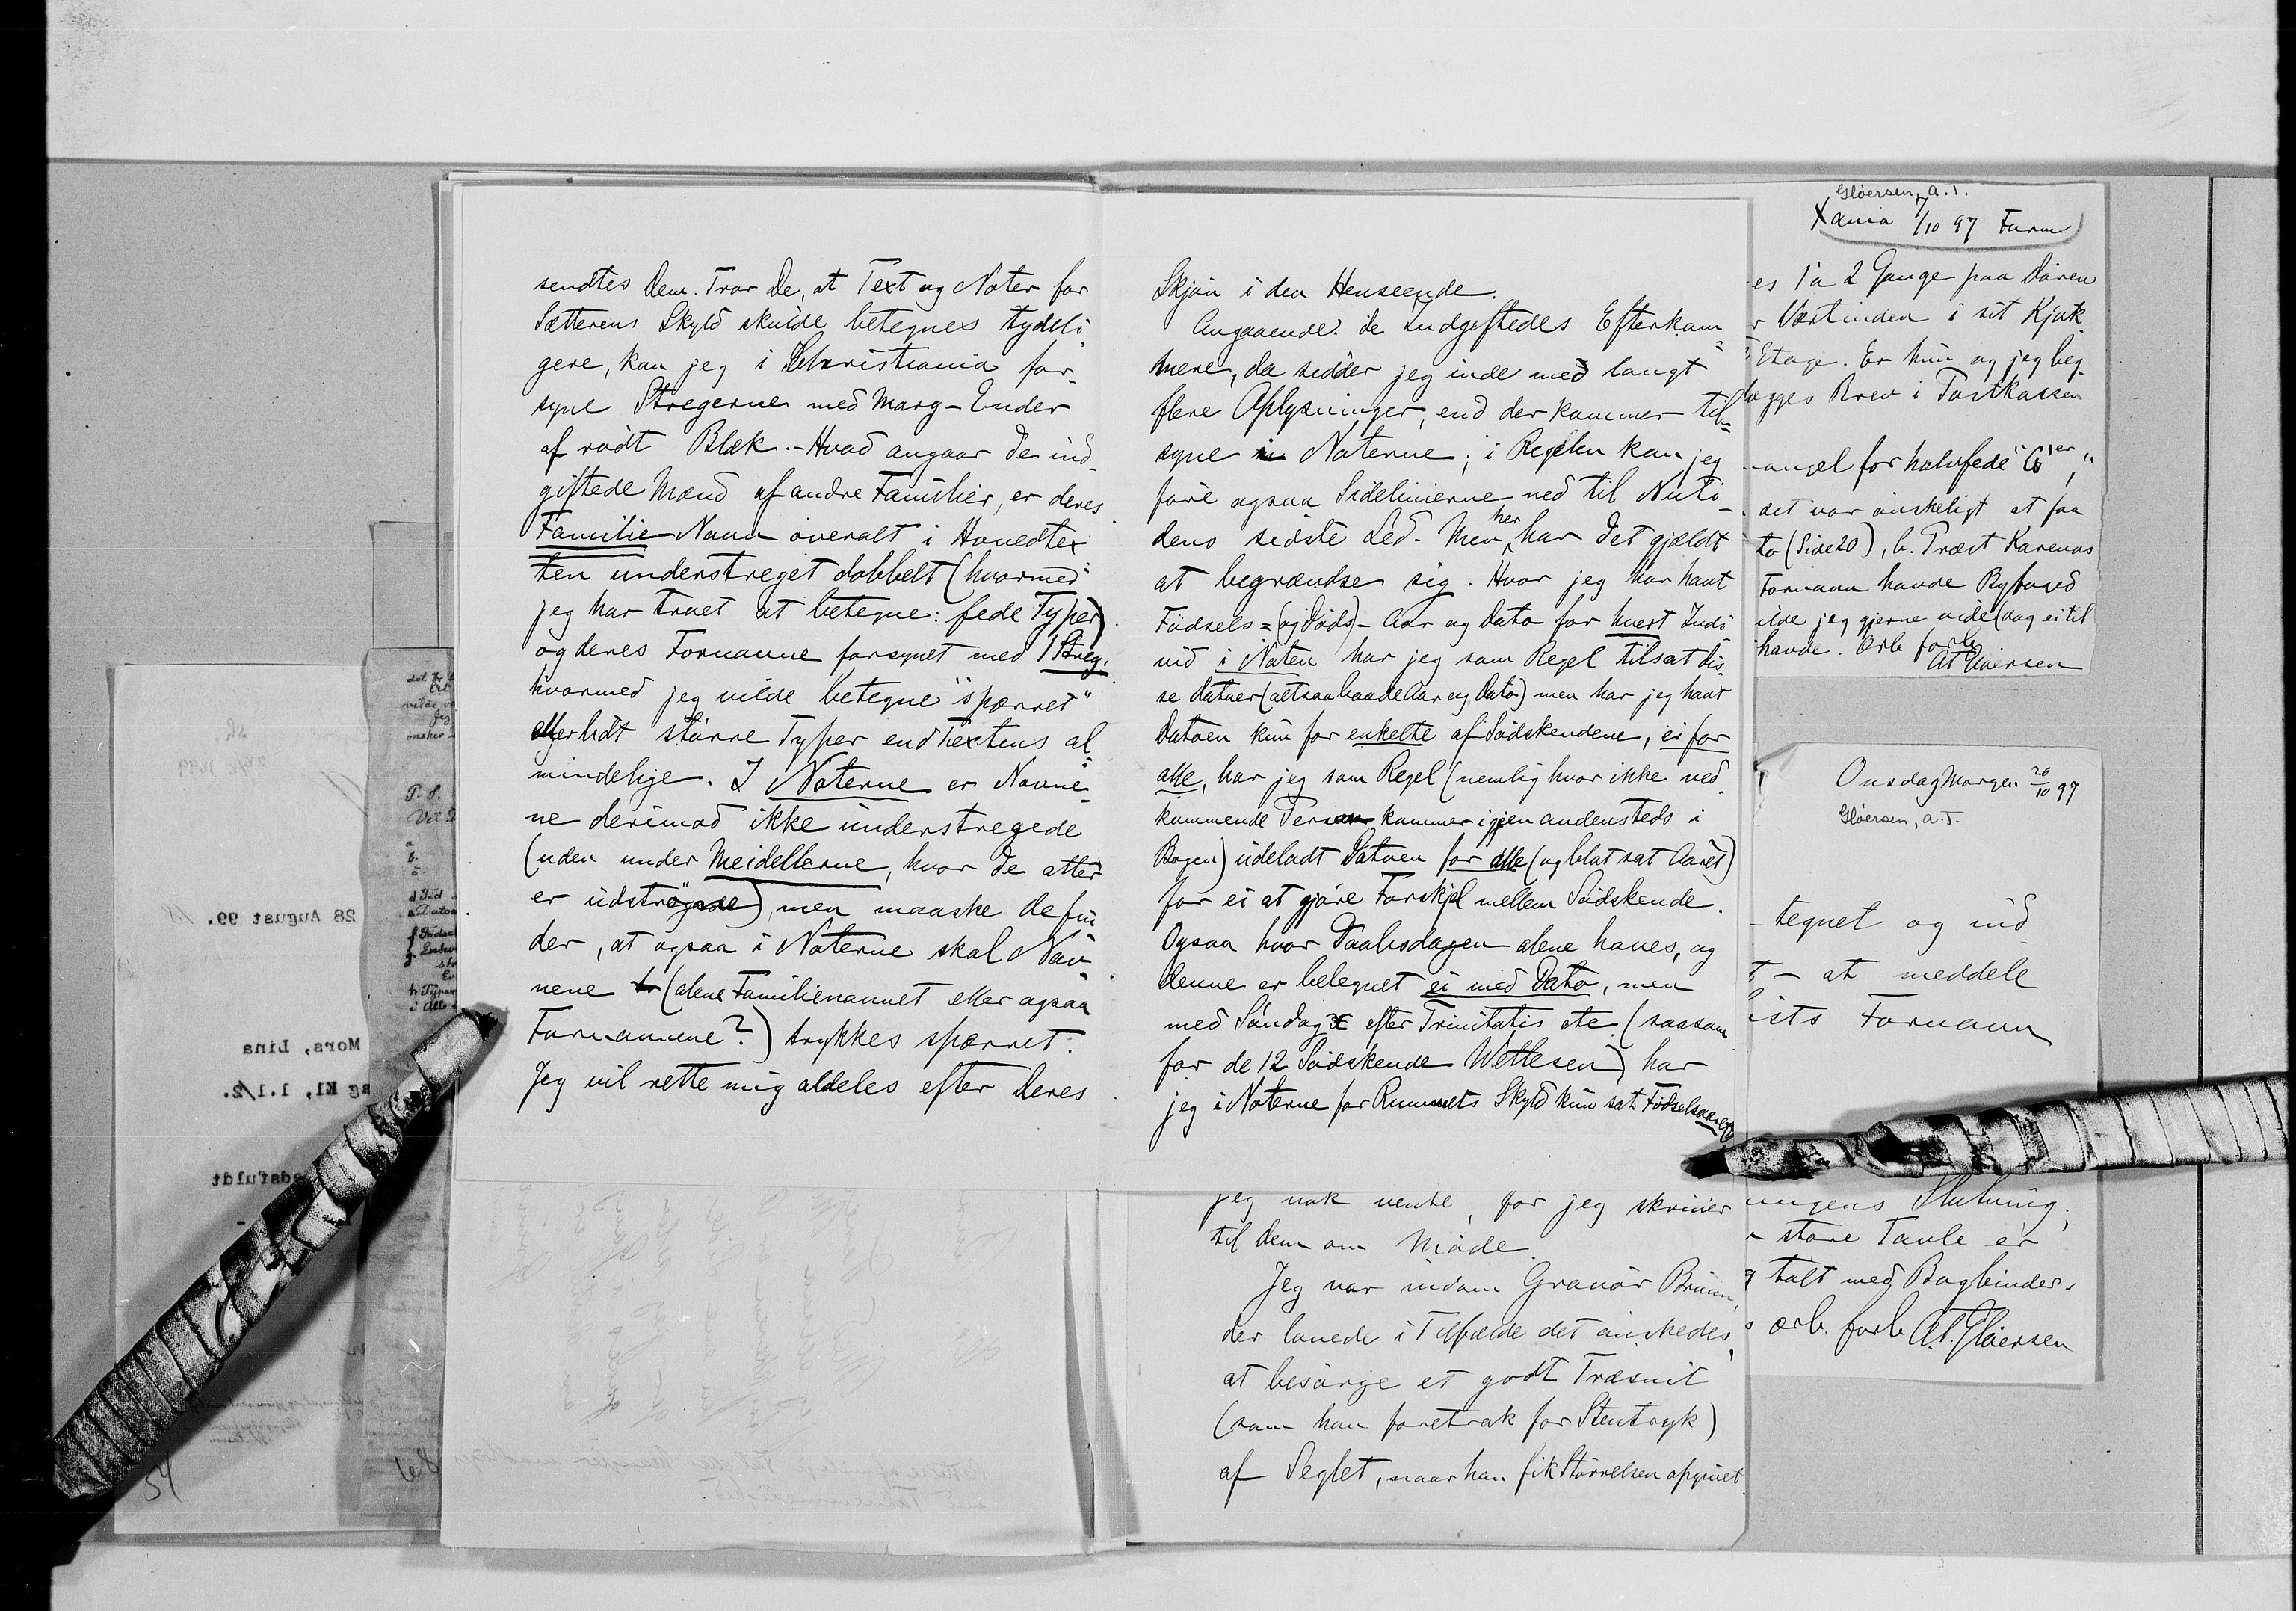 sendtes Dem. Tror De, at Text og Noter for
Sætterens Skyld skulde betegnes tydeli
gere, kan jeg i Christiania for-
syne Stregerne med Marg-Ender
af rødt Blæk. - Hvad angaar de ind
giftede Mænd af andre Familier, er deres
Familie-Navn overalt i Hovedtex
ten understreget dobbelt (hvormed
jeg har troet at betegne: fede Typer)
og deres Fornavne forsynet med 1 Streg.
hvormed jeg vilde betegne "spærret"
eller lidt større Typer end Textens al
mindelige. I Noterne er Navne
ne derimod ikke understregede
(uden under Meidellerne, hvor de atter
er) men maaske De fin
der, at ogsaa i Noterne skal Nav
nene (alene Familienavnet eller ogsaa
Fornavnene?) trykkes spærret.
Jeg vil rette mig aldeles efter Deres
Skjøn i den Henseende.
Angaaende de Indgiftedes Efterkom=
mere, da sidder jeg inde med langt
flere Oplysninger, end der kommer til=
syne i Noterne; i Regelen kan jeg
føre ogsaa Sidelinierne ned til Nuti-
dens sidste Led. Men her har det gjældt
at begrændse sig. Hvor jeg har havt
Fødsels= (og Døds)- Aar og Dato for hvert Indi
vid i Noten har jeg som Regel tilsat dis
se Datoer (altsaa baade Aar og Dato) men har jeg havt
Datoen kun for enkelte af Sødskendene, ei for
alle, har jeg som Regel (nemlig hvor ikke ved
kommende Person kommer igjen andensteds i
Bogen) udeladt Datoen for alle (og blot sat Aaret)
for ei at gjøre Forskjel mellem Sødskende.
Ogsaa hvor Daabsdagen alene haves, og
denne er betegnet ei med Dato, men
med Søndag X efter Trinitatis etc. (saasom
for de 12 Sødskende Wettesen) har
jeg i Noterne for Rummets Skyld kun sat Fødselsaaret
jeg nok vente, før jeg skriver
til Dem om Møde.
Jeg var indom Gravør Bruun,
der lovede i Tilfælde det ønskedes,
at besørge et godt Træsnit
(som han foretrak for Stentryk)
af Seglet, naar han fik Størrelsen opgivet
Gløersen, A.T.
Xania /10 97 Form
es 1 a 2 Gange paa Døren
Værtinden i sit Kjøk
Etage. Er hun og jeg beg
lægges Brev i Postkassen
angel for halvfede "G"er,"
det var ønskeligt at faa
to (Side 20), b. Præst Karenas
Fornavn havde Byfoged
ilde jeg gjerne vide (dog ei til
havde. Ærb forb
AT Gløersen
Onsdag Morgen 20/10 97
Gløersen, A.T.
tegnet og ind
t - at meddele
ists Fornavn
ungens Slutning.
store Tavle er
talt med Bogbinder.
ærb. forb. A.T. Gløersen
28 August 99.
Mors, Lina
ag Kl, 1.1/2.
dsfuldt
54
68
P. S.